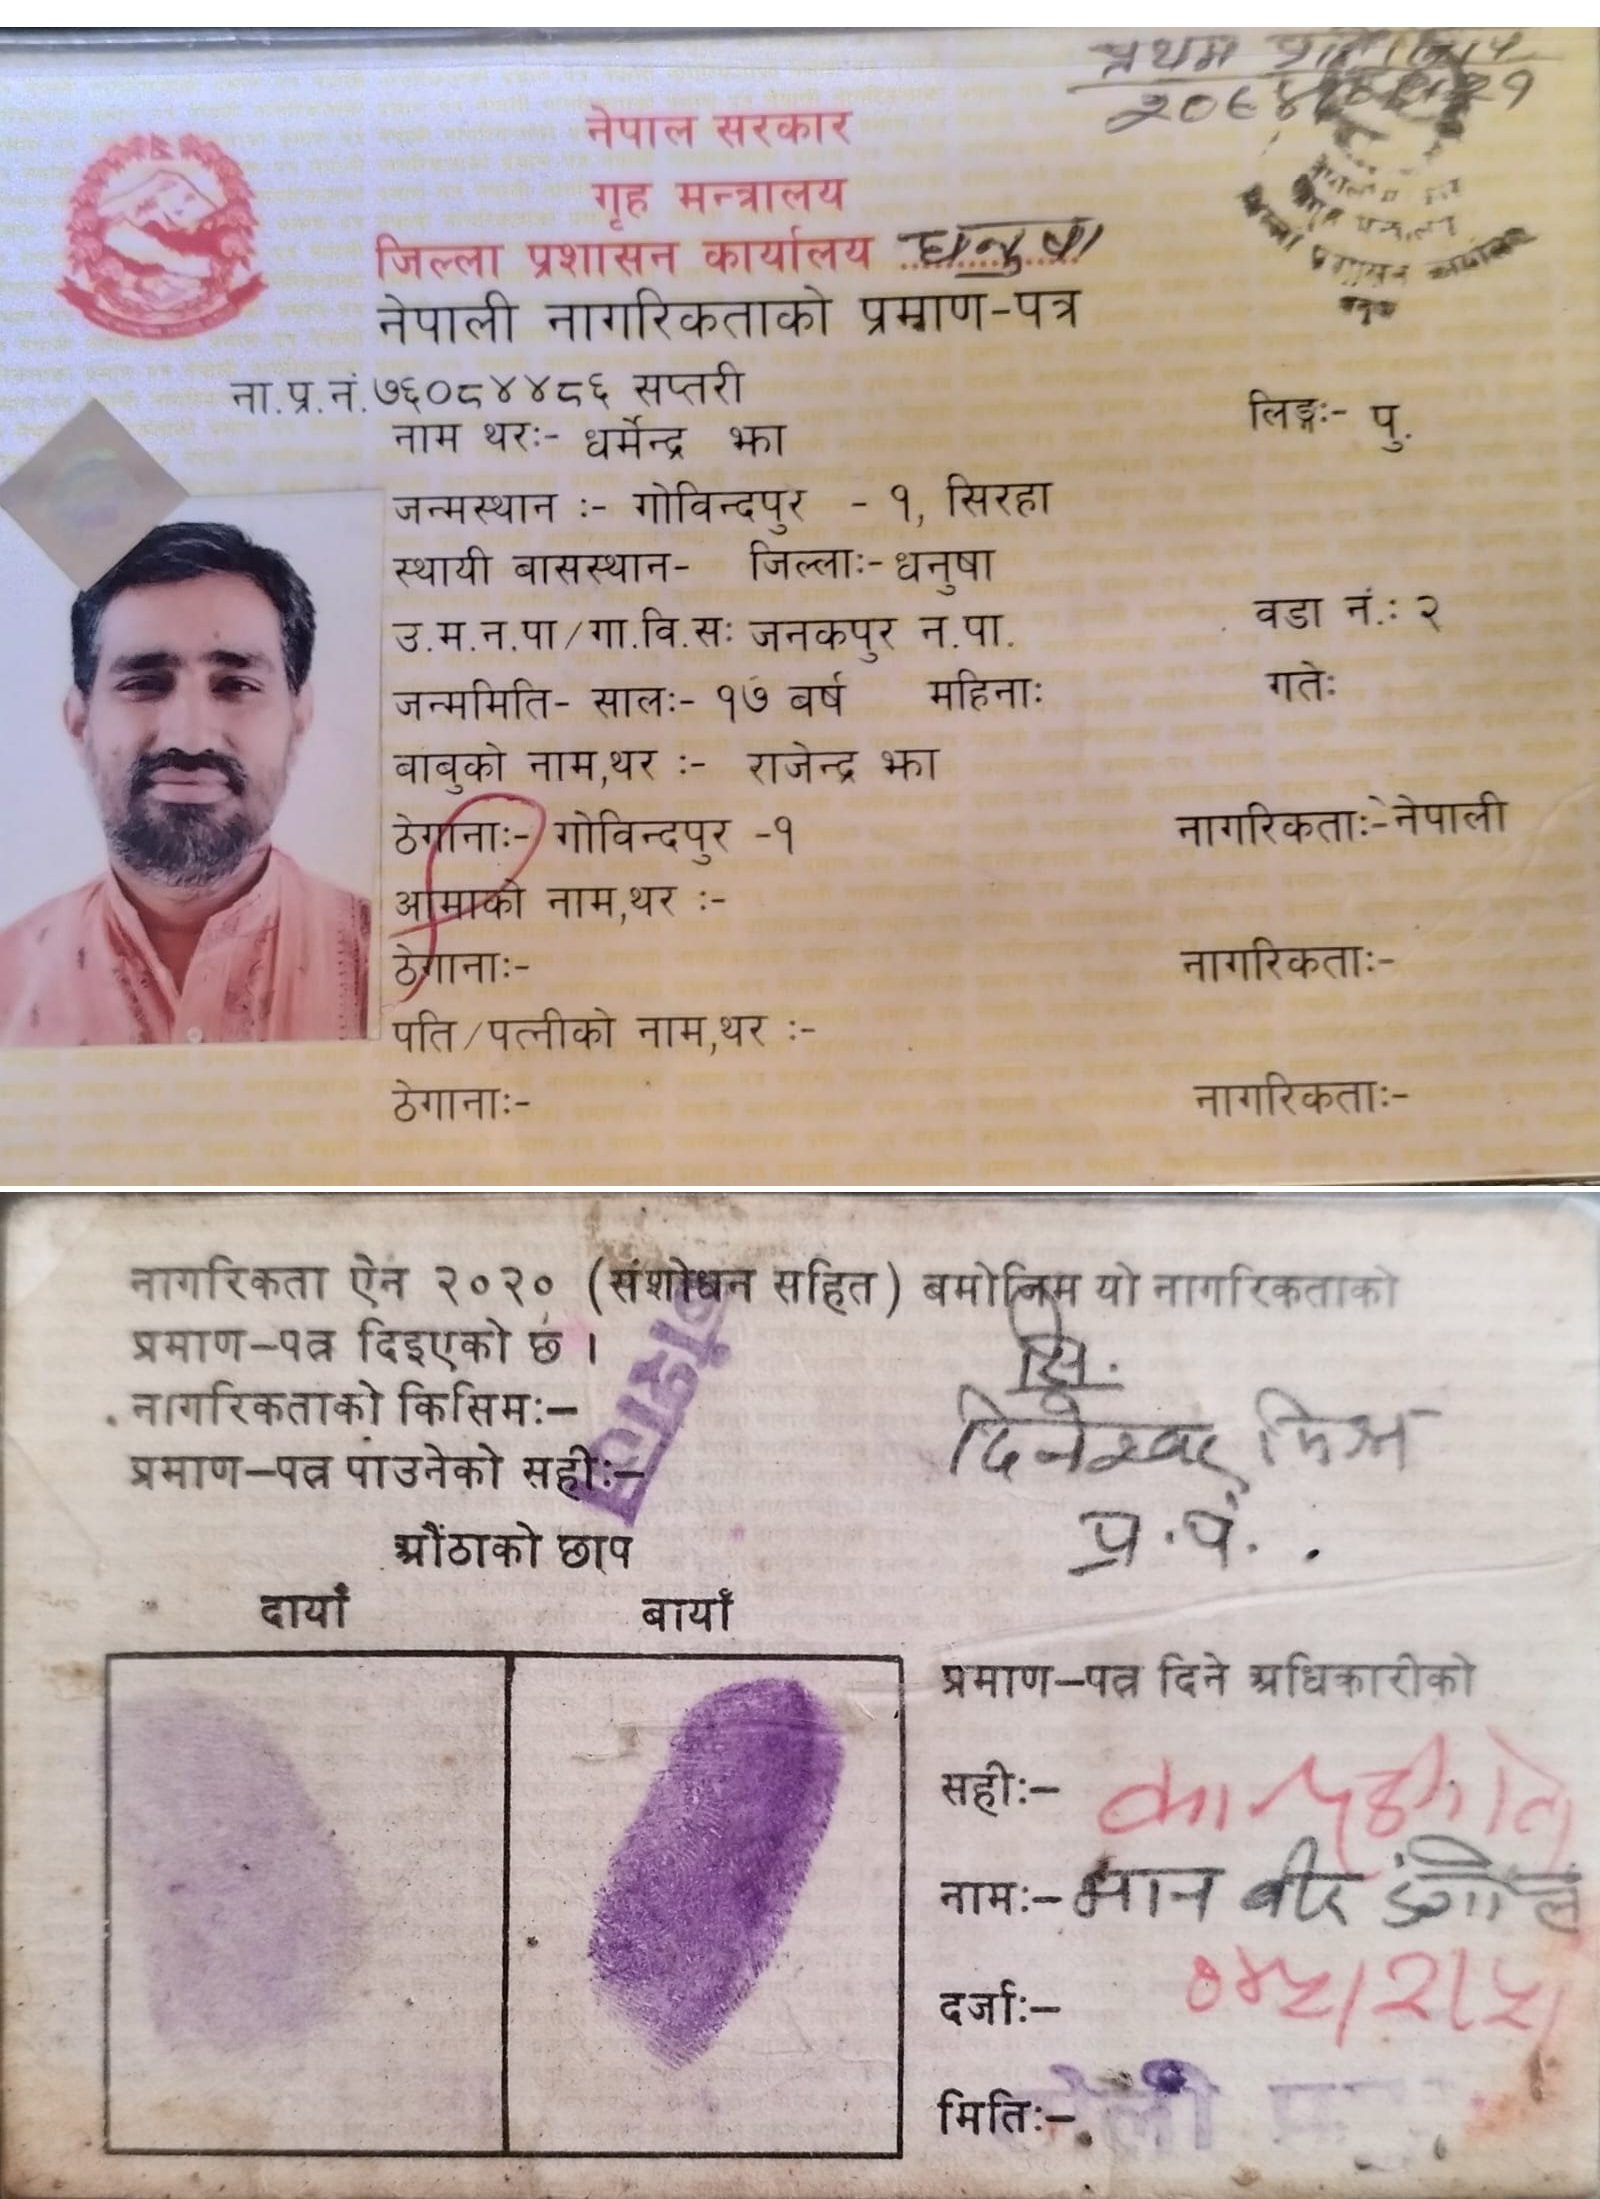 प्रथम
नेपाल सरकार
गृह मन्त्रालय
जिल्ला प्रशासन कार्यालय धनुषा
नेपाली नागरिकताको प्रमाण-पत्र
ना.प्र.नं.७६०८४४८६ सप्तरी
लिङ्गः- पु.
नाम थरः- धर्मेन्द्र झा
जन्मस्थान ः- गोविन्दपुर - १, सिरहा
स्थायी बासस्थान- जिल्लाः- धनुषा
उ.म.न.पा/गा.वि.सः जनकपुर न.पा. वडा नं.: २
जन्ममिति- सालः- १७ बर्ष महिनाः गतेः
बाबुको नाम,थर ः- राजेन्द्र झा
ठेगानाः- गोविन्दपुर -१ नागरिकताः-नेपाली
आमाको नाम,थर ः-
ठेगानाः- नागरिकताः-
पति/पत्नीको नाम,थर ः-
ठेगानाः- नागरिकताः-
नागरिकता ऐन २०२० (संशोधन सहित) बमोजिम यो नागरिकताको
प्रमाण–पत्र दिइएको छ ।
नागरिकताको किसिमः–
प्रमाण–पत्र पाउनेको सहीः–
औंठाको छाप
दायाँ बायाँ
प्रमाण–पत्र दिने अधिकारीको
सहीः–
नामः– मान वीर
दर्जाः–
मितिः–